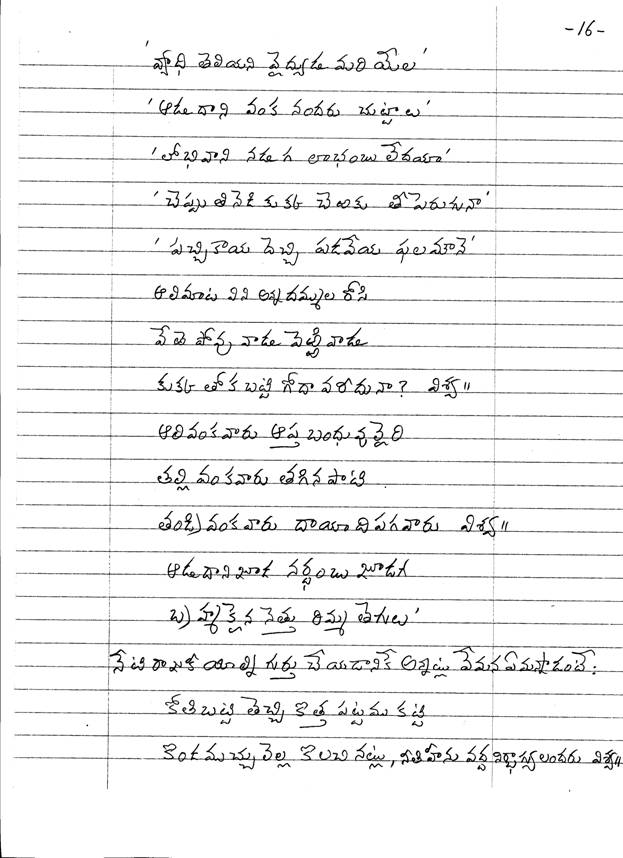 -16-
'వ్యాధి తెలియని వైద్యుడు మరి యేల'
'ఆడు దాని వంక నందరు చుట్టాలు'
'లోభివాని నడుగ లాభంబు లేదయా'
'చెప్పు తినెడి కుక్క చెఱకు తీపెరుగునా'
'పచ్చికాయ దెచ్చి పడవేయ ఫలమౌనె'
ఆలిమాట విని అన్నదమ్ముల రోసి
వేఱె పోవు వాడు వెఱ్ఱివాడు
కుక్క తోక బట్టి గోదావరీదునా? విశ్వ॥
ఆలివంకవారు ఆప్త బంధువులైరి
తల్లి వంకవారు తగినపాటి
తండ్రి వంకవారు దాయాది పగవారు విశ్వ॥
ఆడుదాని జూడ నర్థంబు జూడగ
బ్రహ్మకైన నెత్తు రిమ్మ తెగులు'
నేటి రాజకీయాల్ని గుర్తు చేయడానికే అన్నట్లు వేమన ఏమన్నాడంటే:
కోతిబట్టి తెచ్చి కొత్త పట్టము కట్టి
కొండముచ్చులెల్ల కొలచి నట్లు, నీతిహీను వద్ద నిర్భాగ్యులందరు విశ్వ॥